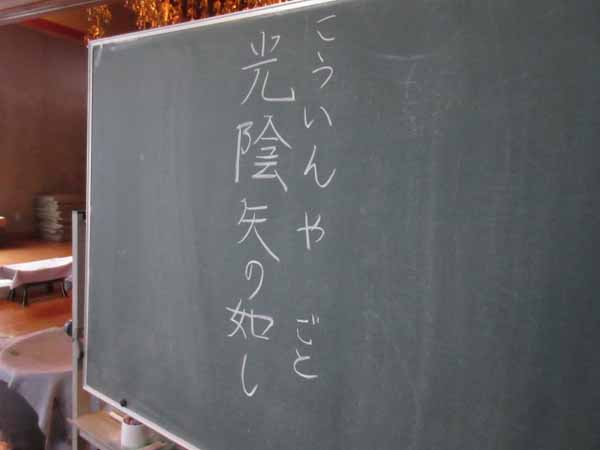 こういんや ごと
光陰矢の如し